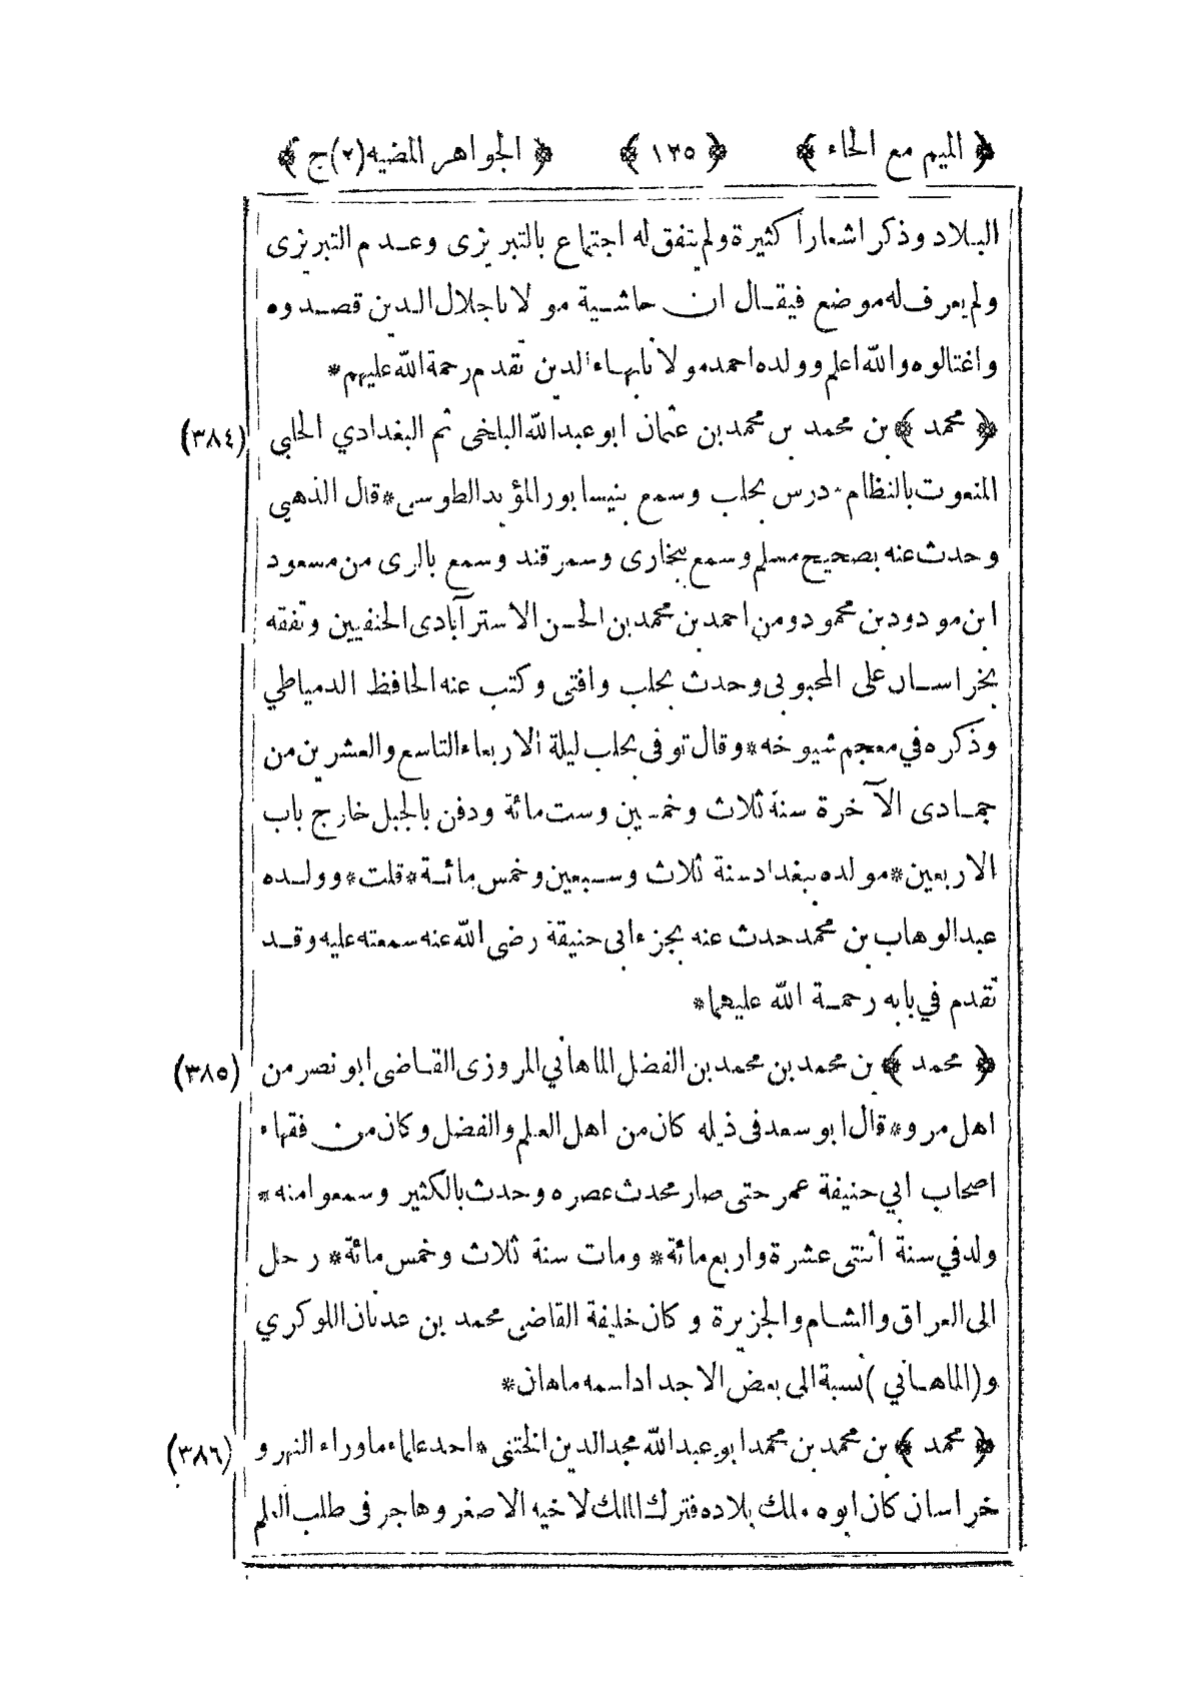 ﴿ الميم مع الحاء ﴾ ﴿ ١٢٥ ﴾ ﴿ الجواهر المضيه (٢) ج ﴾
البلاد وذكر اشعاراً كثيرة ولم يتفق له اجتماع بالتبريزى وعدم التبريزى
ولم يعرف له موضع فيقال ان حاشية مولانا جلال الدين قصدوه
واغتالوه والله اعلم وولده احمد مولانا بهاء الدين تقدم رحمة الله عليهم *
﴿ محمد ﴾ بن محمد بن محمد بن عثمان ابو عبد الله البلخى ثم البغدادي الحلبي (٣٨٤)
المنعوت بالنظام - درس بحلب وسمع بنيسابور المؤيد الطوسى * قال الذهبي
وحدث عنه بصحيح مسلم وسمع ببخارى وسمرقند وسمع بالرى من مسعود
ابن مودود بن محمود ومن احمد بن محمد بن الحسن الاسترآبادى الحنفيين وتفقه
بخراسان على المحبوبى وحدث بحلب وافتى وكتب عنه الحافظ الدمياطي
وذكره في معجم شيوخه * وقال توفى بحلب ليلة الاربعاء التاسع والعشرين من
جمادى الآخرة سنة ثلاث وخمسين وست مائة ودفن بالجبل خارج باب
الاربعين * مولده ببغداد سنة ثلاث وسبعين وخمس مائة * قلت * وولده
عبد الوهاب بن محمد حدث عنه بجزء ابى حنيفة رضى الله عنه سمعته عليه وقد
تقدم في بابه رحمة الله عليهما *
﴿ محمد ﴾ بن محمد بن محمد بن الفضل الماهاني المروزى القاضى ابو نصر من (٣٨٥)
اهل مرو * قال ابو سعد فى ذيله كان من اهل العلم والفضل وكان من فقهاء
اصحاب ابي حنيفة عمر حتى صار محدث عصره وحدث بالكثير وسمعوا منه *
ولد في سنة اثنتى عشرة واربع مائة * ومات سنة ثلاث وخمس مائة * رحل
الى العراق والشام والجزيرة وكان خليفة القاضى محمد بن عدنان اللوكري
و (الماهاني) نسبة الى بعض الاجداد اسمه ماهان *
﴿ محمد ﴾ بن محمد بن محمد ابو عبد الله مجد الدين الختنى * احد علماء ماوراء النهر و (٣٨٦)
خراسان كان ابوه ملك بلاده فترك الملك لاخيه الاصغر وهاجر فى طلب العلم